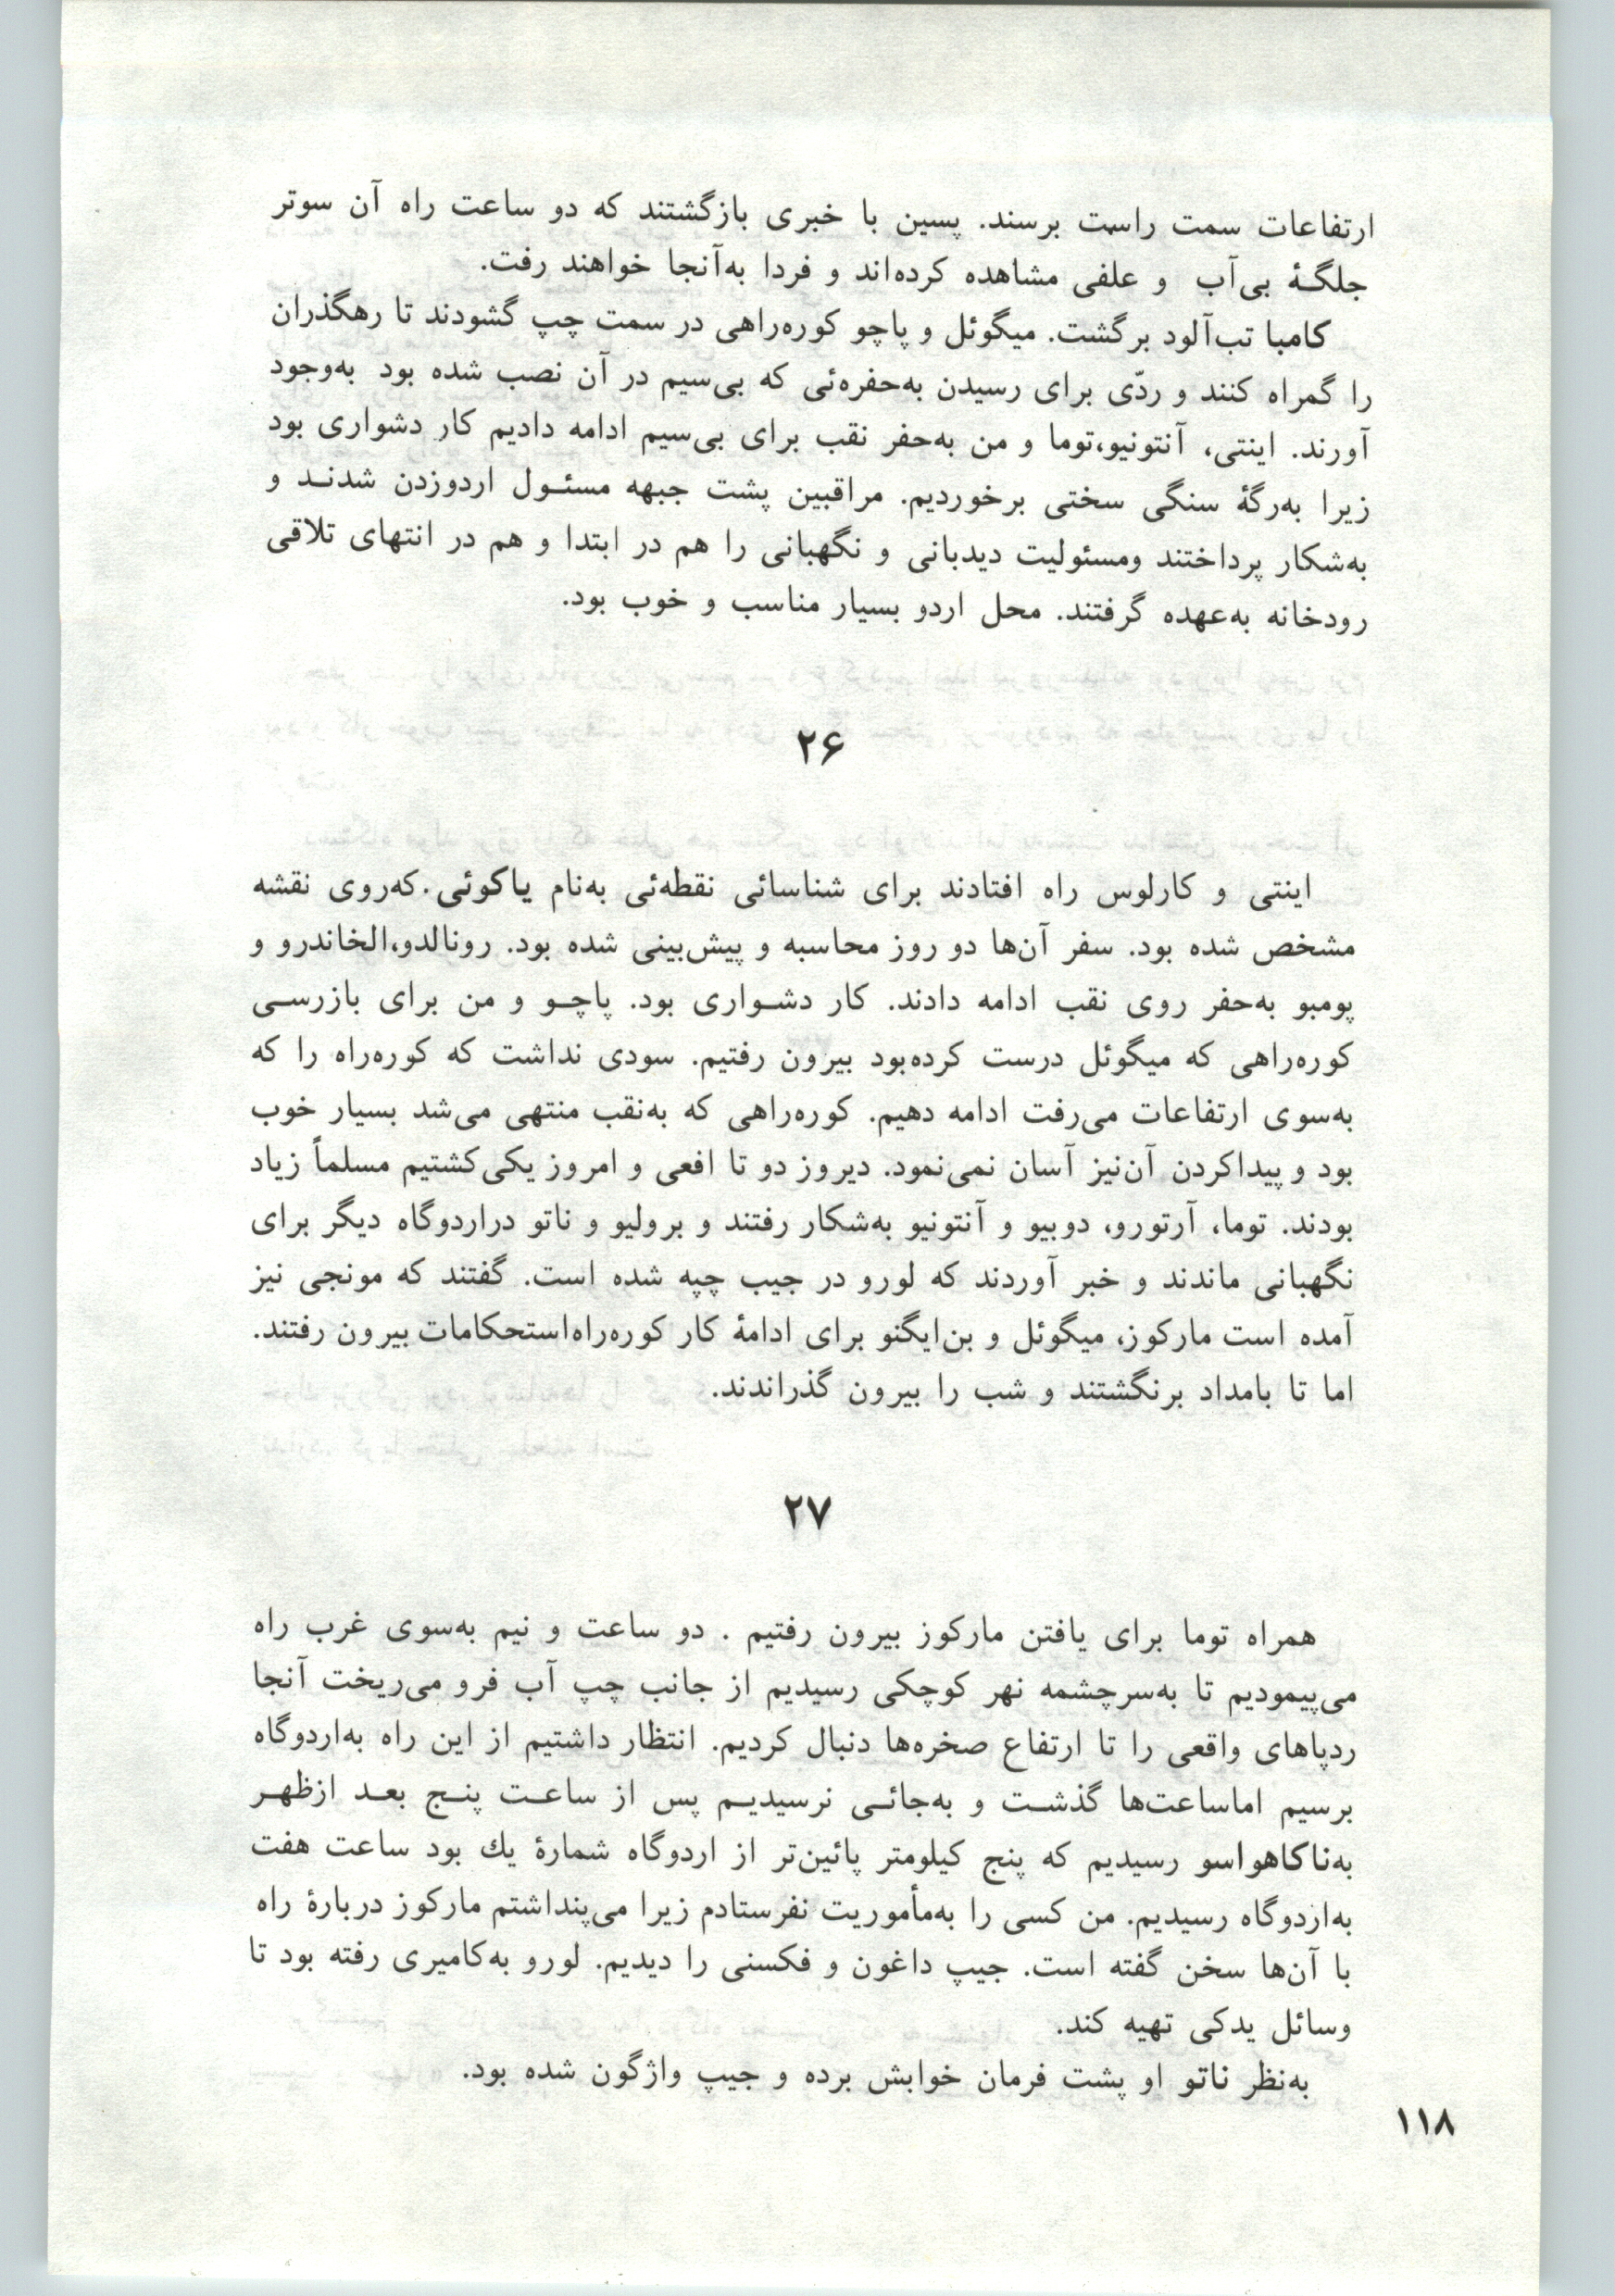 ارتفاعات سمت راست برسند. پسین با خبری بازگشتند که دو ساعت راه آن سوتر
جلگـهٔ بی‌آب و علفی مشاهده کرده‌اند و فردا به‌آنجا خواهند رفت.
کامبا تب‌آلود برگشت. میگوئل و پاچو کوره‌راهی در سمت چپ گشودند تا رهگذران
را گمراه کنند و ردّی برای رسیدن به‌حفره‌ئی که بی‌سیم در آن نصب شده بود به‌وجود
آورند. اینتی، آنتونیو،توما و من به‌حفر نقب برای بی‌سیم ادامه دادیم کار دشواری بود
زیرا به‌رگهٔ سنگی سختی برخوردیم. مراقبین پشت جبهه مسئـول اردوزدن شدنـد و
به‌شکار پرداختند ومسئولیت دیدبانی و نگهبانی را هم در ابتدا و هم در انتهای تلاقی
رودخانه به‌عهده گرفتند. محل اردو بسیار مناسب و خوب بود.
۲۶
اینتی و کارلوس راه افتادند برای شناسائی نقطه‌ئی به‌نام یاکوئی.که‌روی نقشه
مشخص شده بود. سفر آن‌ها دو روز محاسبه و پیش‌بینی شده بود. رونالدو،الخاندرو و
پومبو به‌حفر روی نقب ادامه دادند. کار دشـواری بود. پاچـو و من برای بازرسـی
کوره‌راهی که میگوئل درست کرده‌بود بیرون رفتیم. سودی نداشت که کوره‌راه را که
به‌سوی ارتفاعات می‌رفت ادامه دهیم. کوره‌راهی که به‌نقب منتهی می‌شد بسیار خوب
بود و پیداکردن آن‌نیز آسان نمی‌نمود. دیروز دو تا افعی و امروز یکی‌کشتیم مسلماً زیاد
بودند. توما، آرتورو، دوبیو و آنتونیو به‌شکار رفتند و برولیو و ناتو دراردوگاه دیگر برای
نگهبانی ماندند و خبر آوردند که لورو در جیب چپه شده است. گفتند که مونجی نیز
آمده است مارکوز، میگوئل و بن‌ایگنو برای ادامهٔ کار کوره‌راه‌استحکامات بیرون رفتند.
اما تا بامداد برنگشتند و شب را بیرون گذراندند.
۲۷
همراه توما برای یافتن مارکوز بیرون رفتیم . دو ساعت و نیم به‌سوی غرب راه
می‌پیمودیم تا به‌سرچشمه نهر کوچکی رسیدیم از جانب چپ آب فرو می‌ریخت آنجا
ردپاهای واقعی را تا ارتفاع صخره‌ها دنبال کردیم. انتظار داشتیم از این راه به‌اردوگاه
برسیم اماساعت‌ها گذشـت و به‌جائـی نرسیدیـم پس از ساعـت پنـج بعـد ازظهـر
به‌ناکاهواسو رسیدیم که پنج کیلومتر پائین‌تر از اردوگاه شمارهٔ یك بود ساعت هفت
به‌اردوگاه رسیدیم. من کسی را به‌مأموریت نفرستادم زیرا می‌پنداشتم مارکوز دربارهٔ راه
با آن‌ها سخن گفته است. جیپ داغون و فکسنی را دیدیم. لورو به‌کامیری رفته بود تا
وسائل یدکی تهیه کند.
به‌نظر ناتو او پشت فرمان خوابش برده و جیپ واژگون شده بود.
۱۱۸